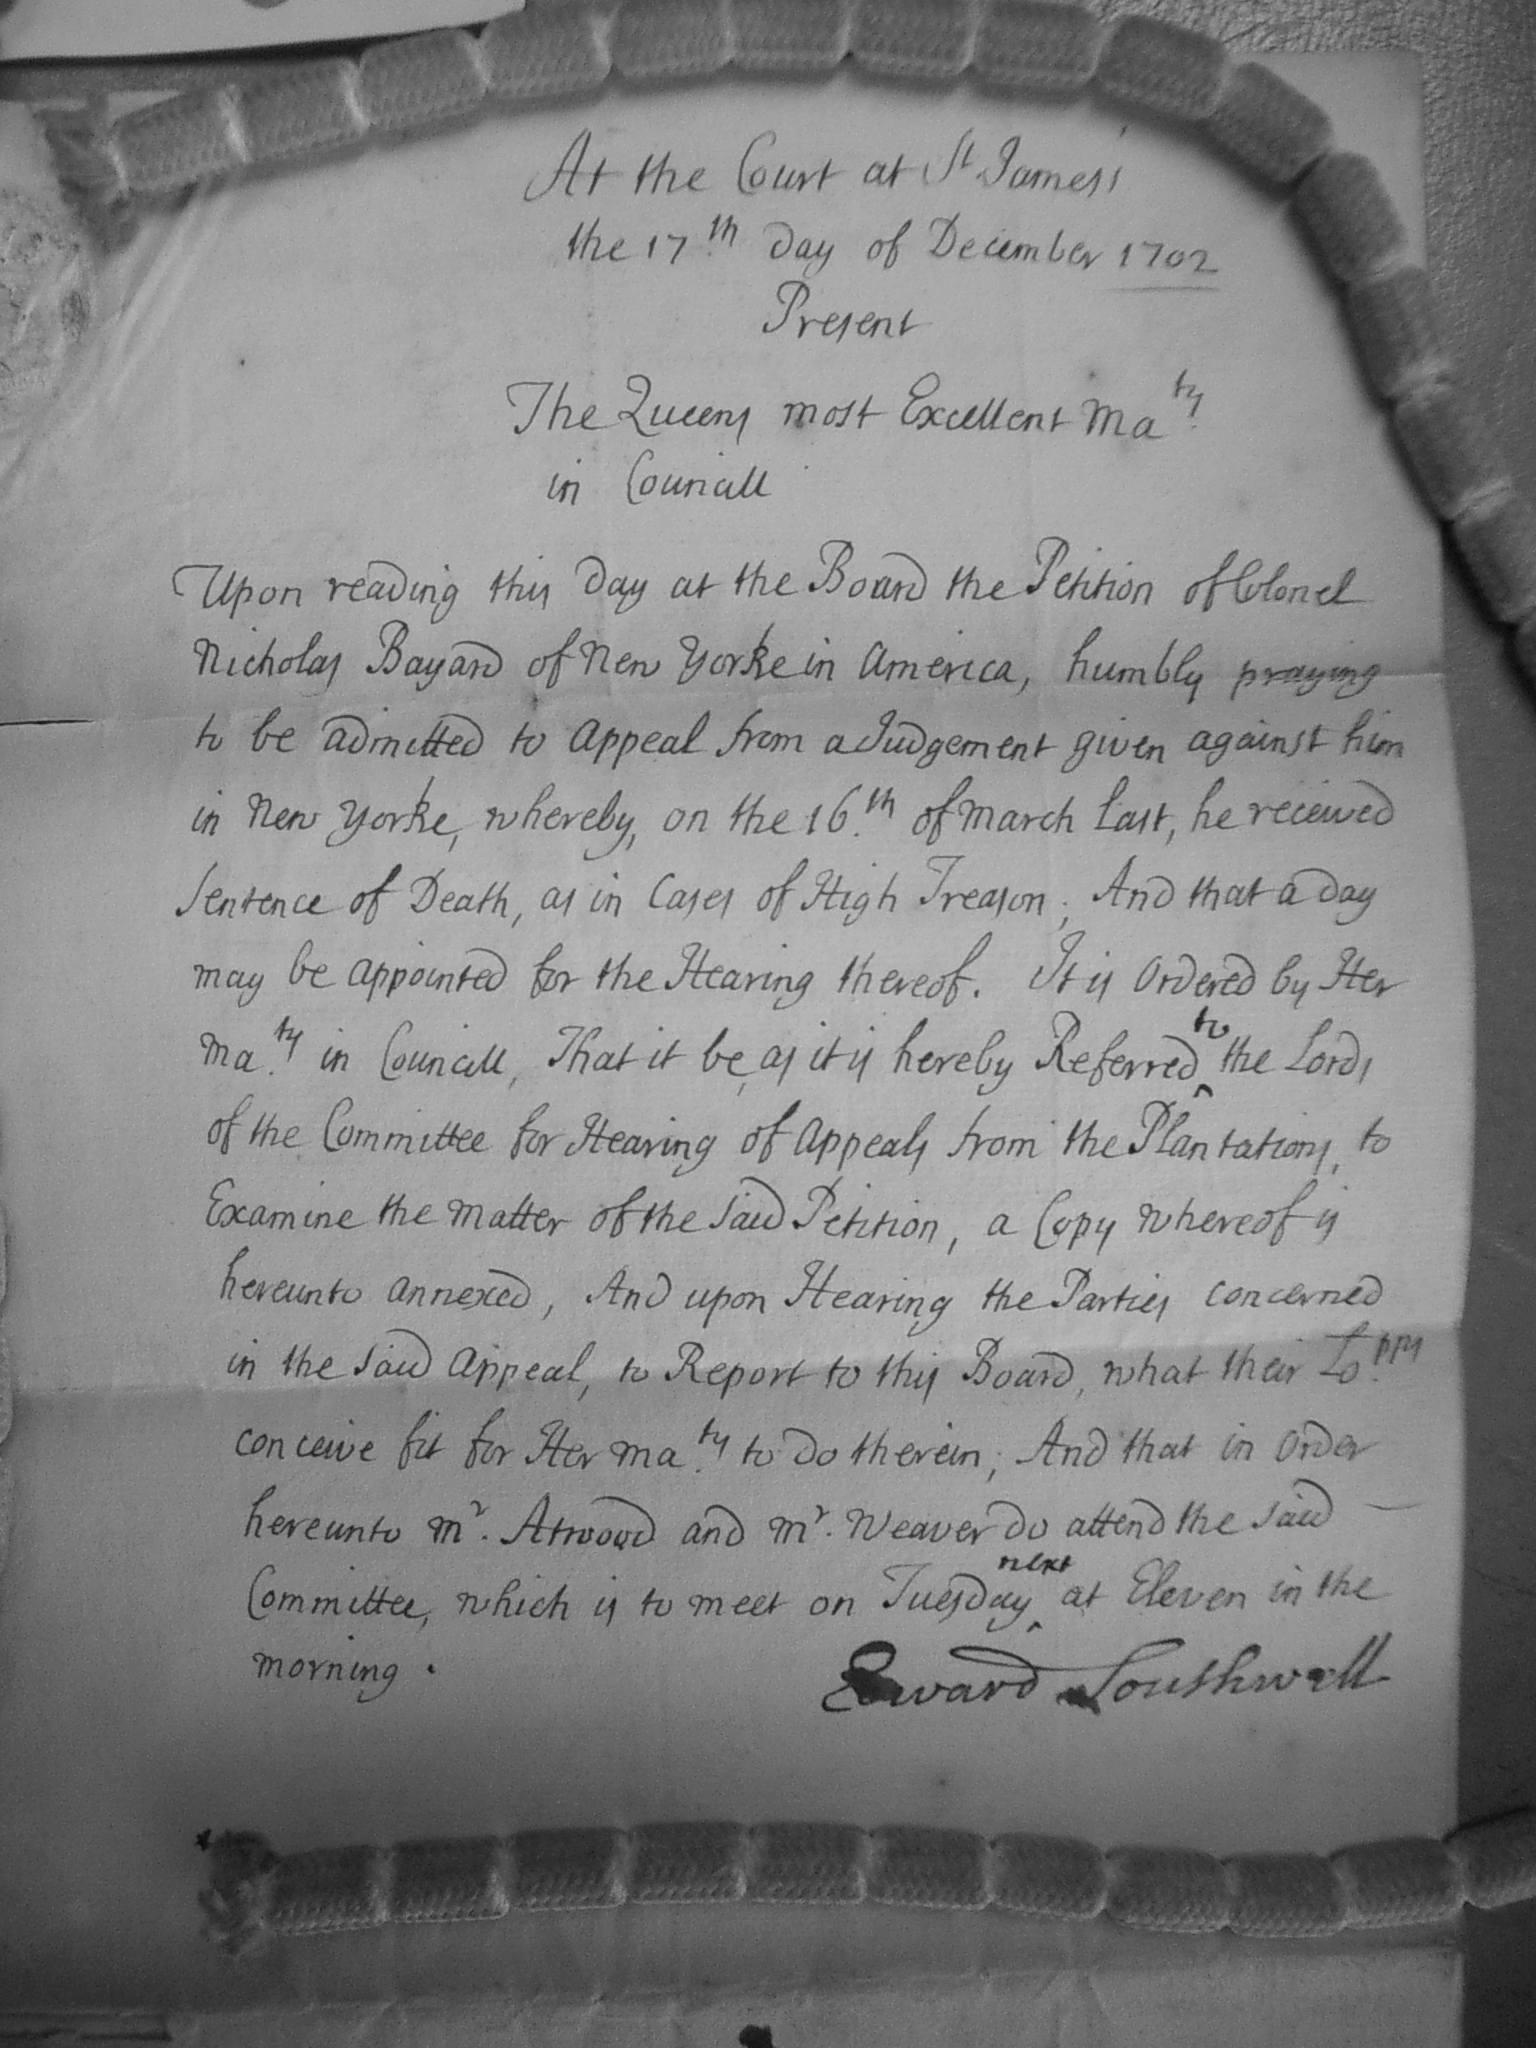 At the Court at St James's
the 17.th day of December 1702
Present
The Queens most Excellent Ma.ty
in Councill
Upon reading this day at the Board the Petition of Colonel
Nicholas Bayard of New Yorke in America, humbly praying
to be admitted to Appeal from a Judgement given against him
in New Yorke, whereby, on the 16.th of March last, he received
Sentence of Death, as in Cases of High Treason; And that a day
may be appointed for the Hearing thereof. It is Ordered by Her
Ma.ty in Councill, That it be, as it is hereby Referred to the Lords
of the Committee for Hearing of Appeals from the Plantations, to
Examine the matter of the said Petition, a Copy whereof is
hereunto annexed, And upon Hearing the Parties concerned
in the said Appeal, to Report to this Board, what their Lo.pps
conceive fit for Her Ma.ty to do therein; And that in Order
hereunto Mr. Atwood and Mr. Weaver do attend the said
Committee, which is to meet on Tuesday next at Eleven in the
morning.
Edward Southwell